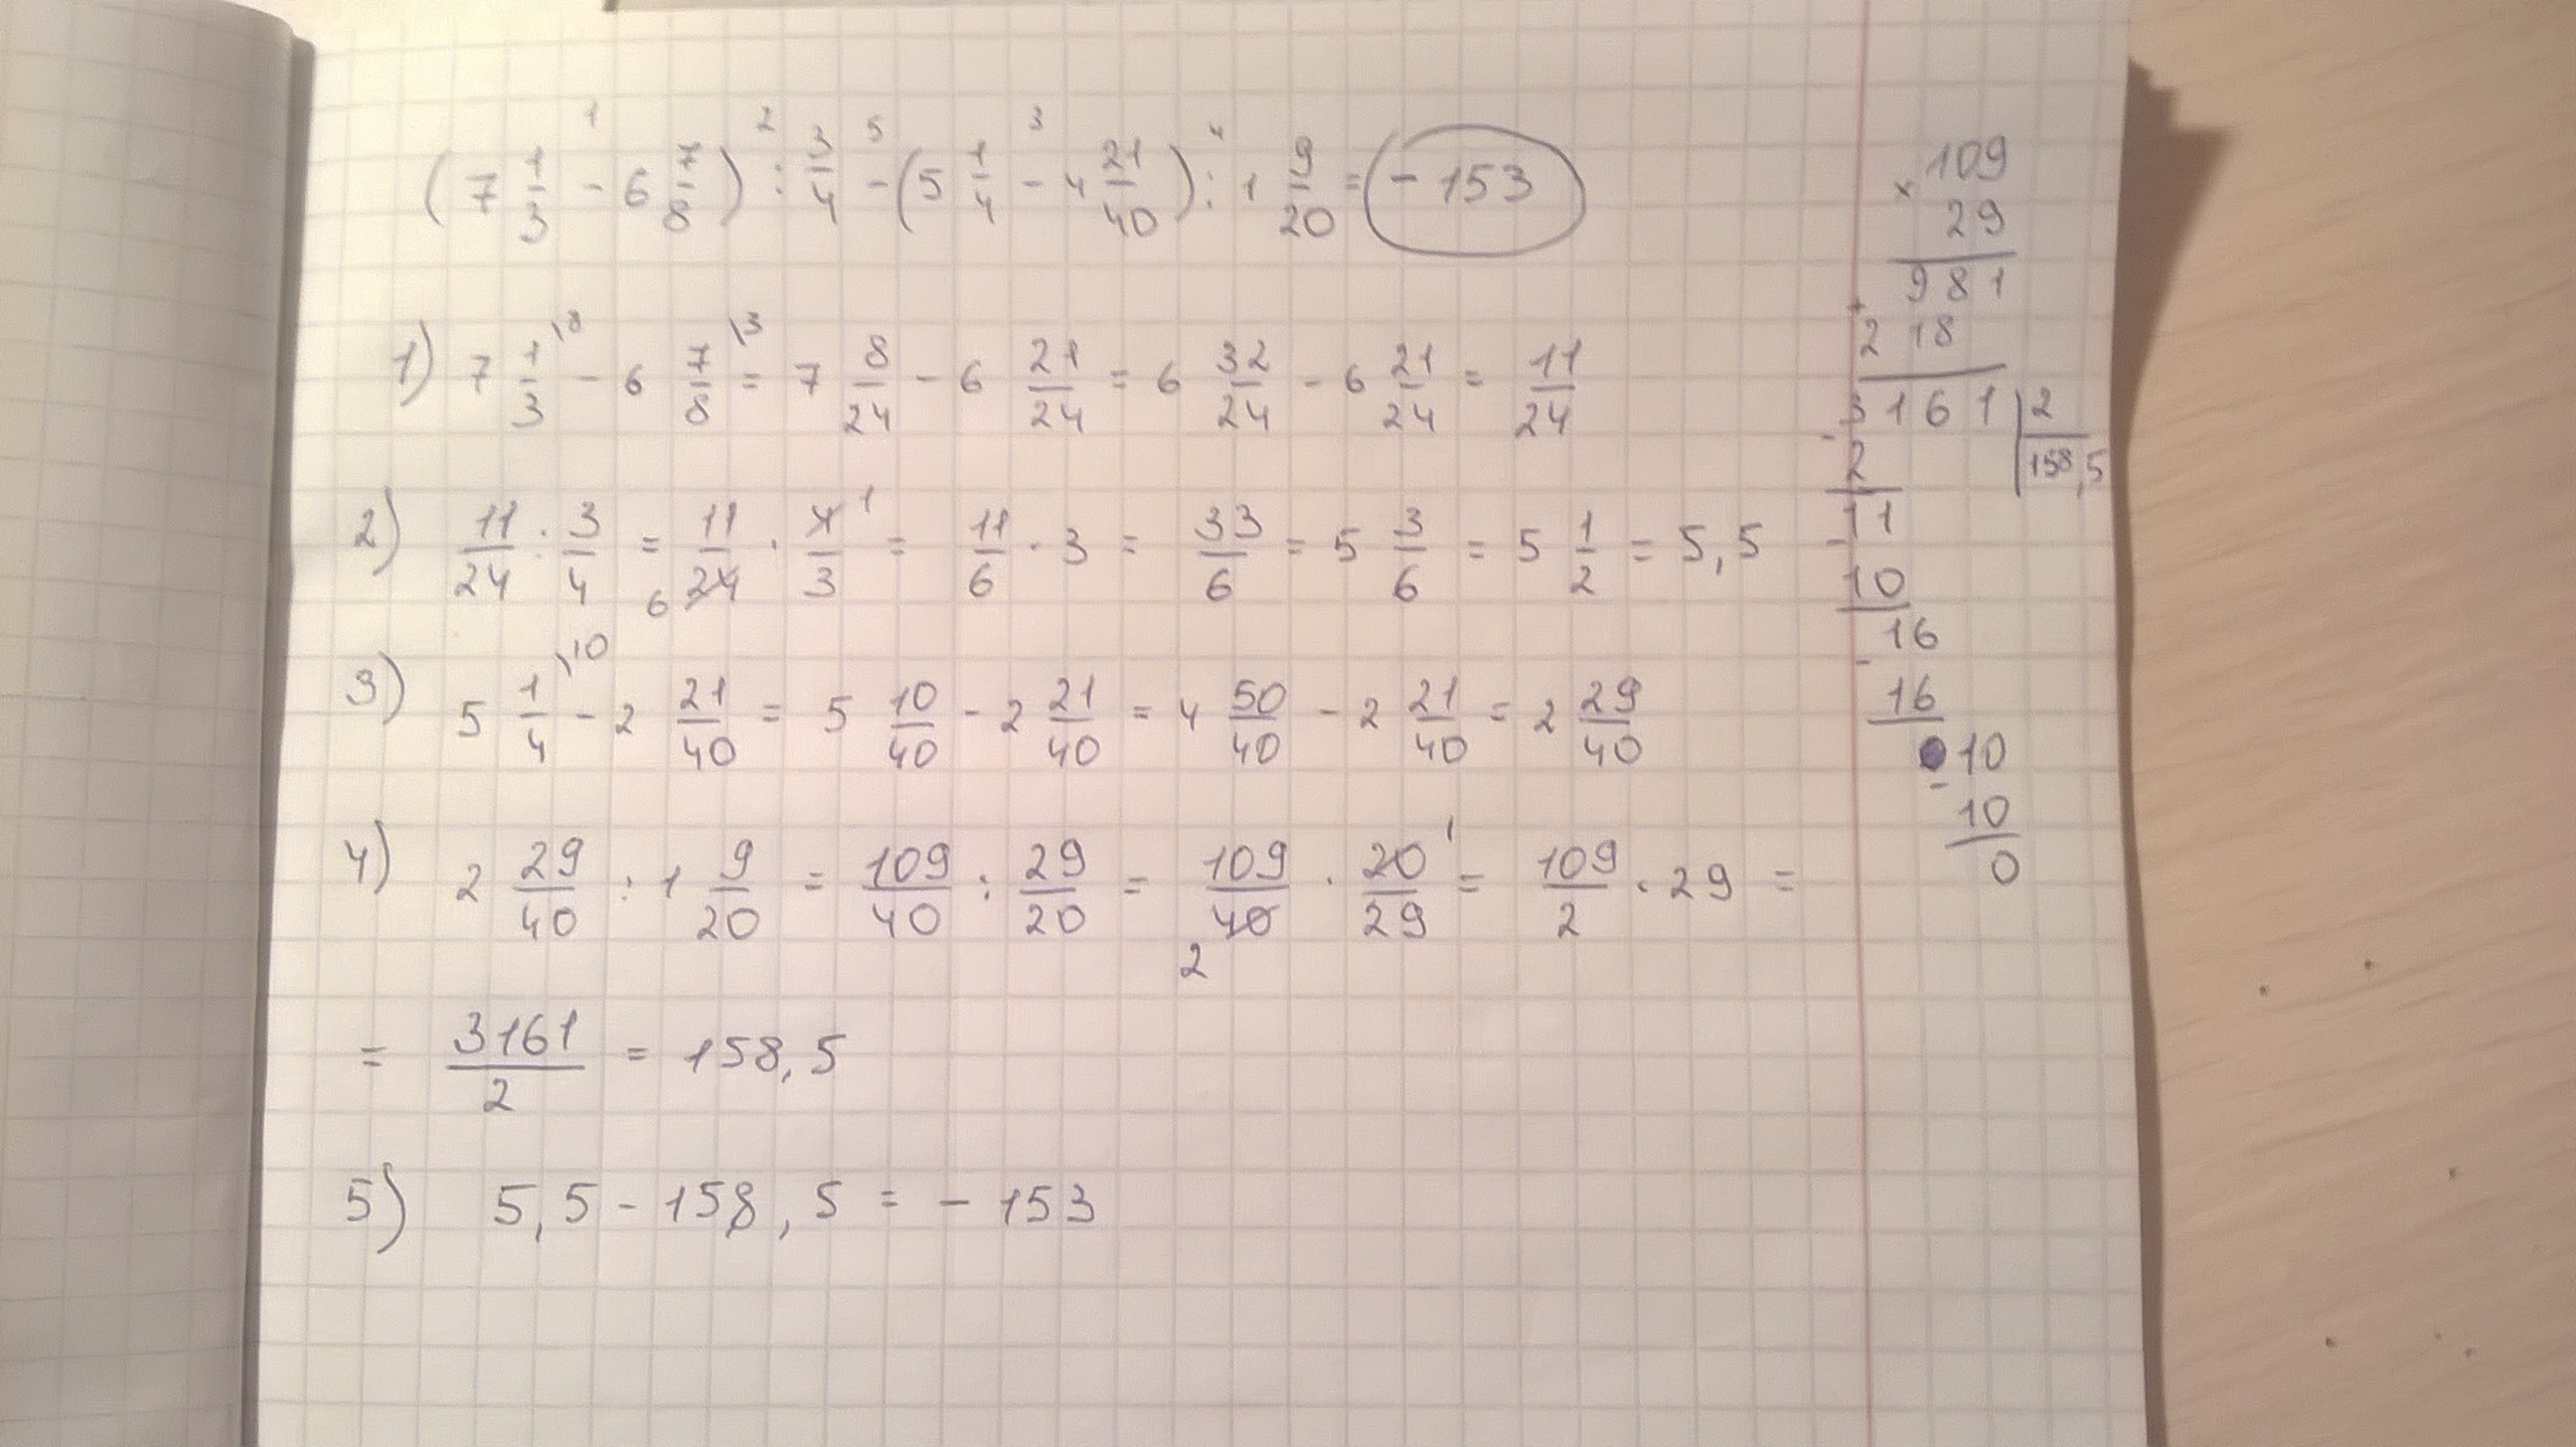 (7 1/3 - 6 7/8) : 3/4 - (5 1/4 - 4 21/40) : 1 9/20 = - 153
1) 7 1/3 - 6 7/8 = 7 8/24 - 6 21/24 = 6 32/24 - 6 21/24 = 11/24
2) 11/24 : 3/4 = 11/24 · 4/3 = 11/6 · 3 = 33/6 = 5 3/6 = 5 1/2 = 5,5
3) 5 1/4 - 2 21/40 = 5 10/40 - 2 21/40 = 4 50/40 - 2 21/40 = 2 29/40
4) 2 29/40 : 1 9/20 = 109/40 : 29/20 = 109/40 · 20/29 = 109/2 · 29 =
= 3161/2 = 158,5
5) 5,5 - 158,5 = - 153
109
× 29
981
+ 218
3161 | 2
158,5
- 2
11
- 10
16
- 16
10
- 10
0